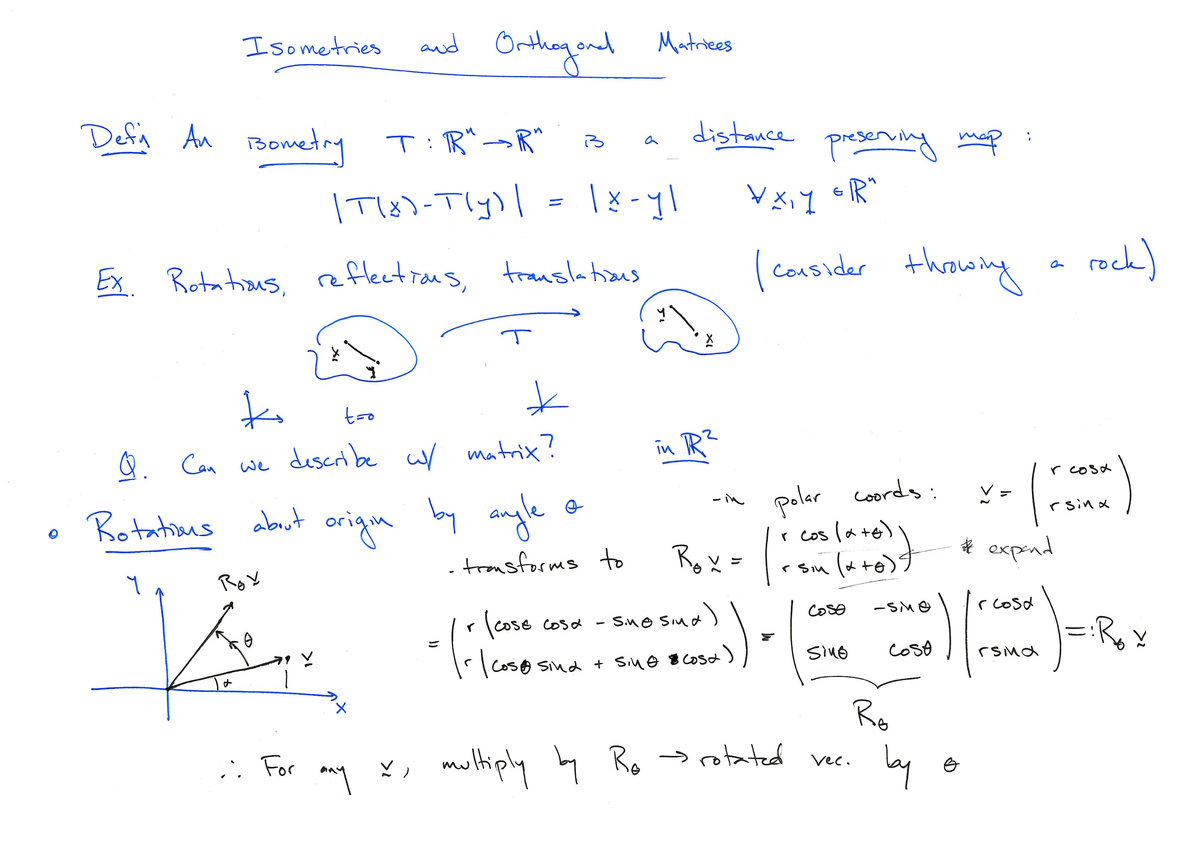 Isometries and Orthogonal Matrices
Def'n An isometry T : ℝⁿ → ℝⁿ is a distance preserving map :
|T(x̰) - T(y̰)| = |x̰ - y̰| ∀ x̰, y̰ ∈ ℝⁿ
Ex. Rotations, reflections, translations (consider throwing a rock)
x̰ y̰ T y̰ x̰
t=0
Q. Can we describe w/ matrix? in ℝ²
- in polar coords : v̰ = (r cosα
r sinα)
• Rotations about origin by angle θ
- transforms to R_θ v̰ = (r cos(α+θ)
r sin(α+θ)) * expand
Y R_θ v̰ θ v̰ α X
= (r(cosθ cosα - sinθ sinα)
r(cosθ sinα + sinθ cosα)) = (cosθ -sinθ
sinθ cosθ) (r cosα
r sinα) =: R_θ v̰
R_θ
∴ For any v̰, multiply by R_θ → rotated vec. by θ